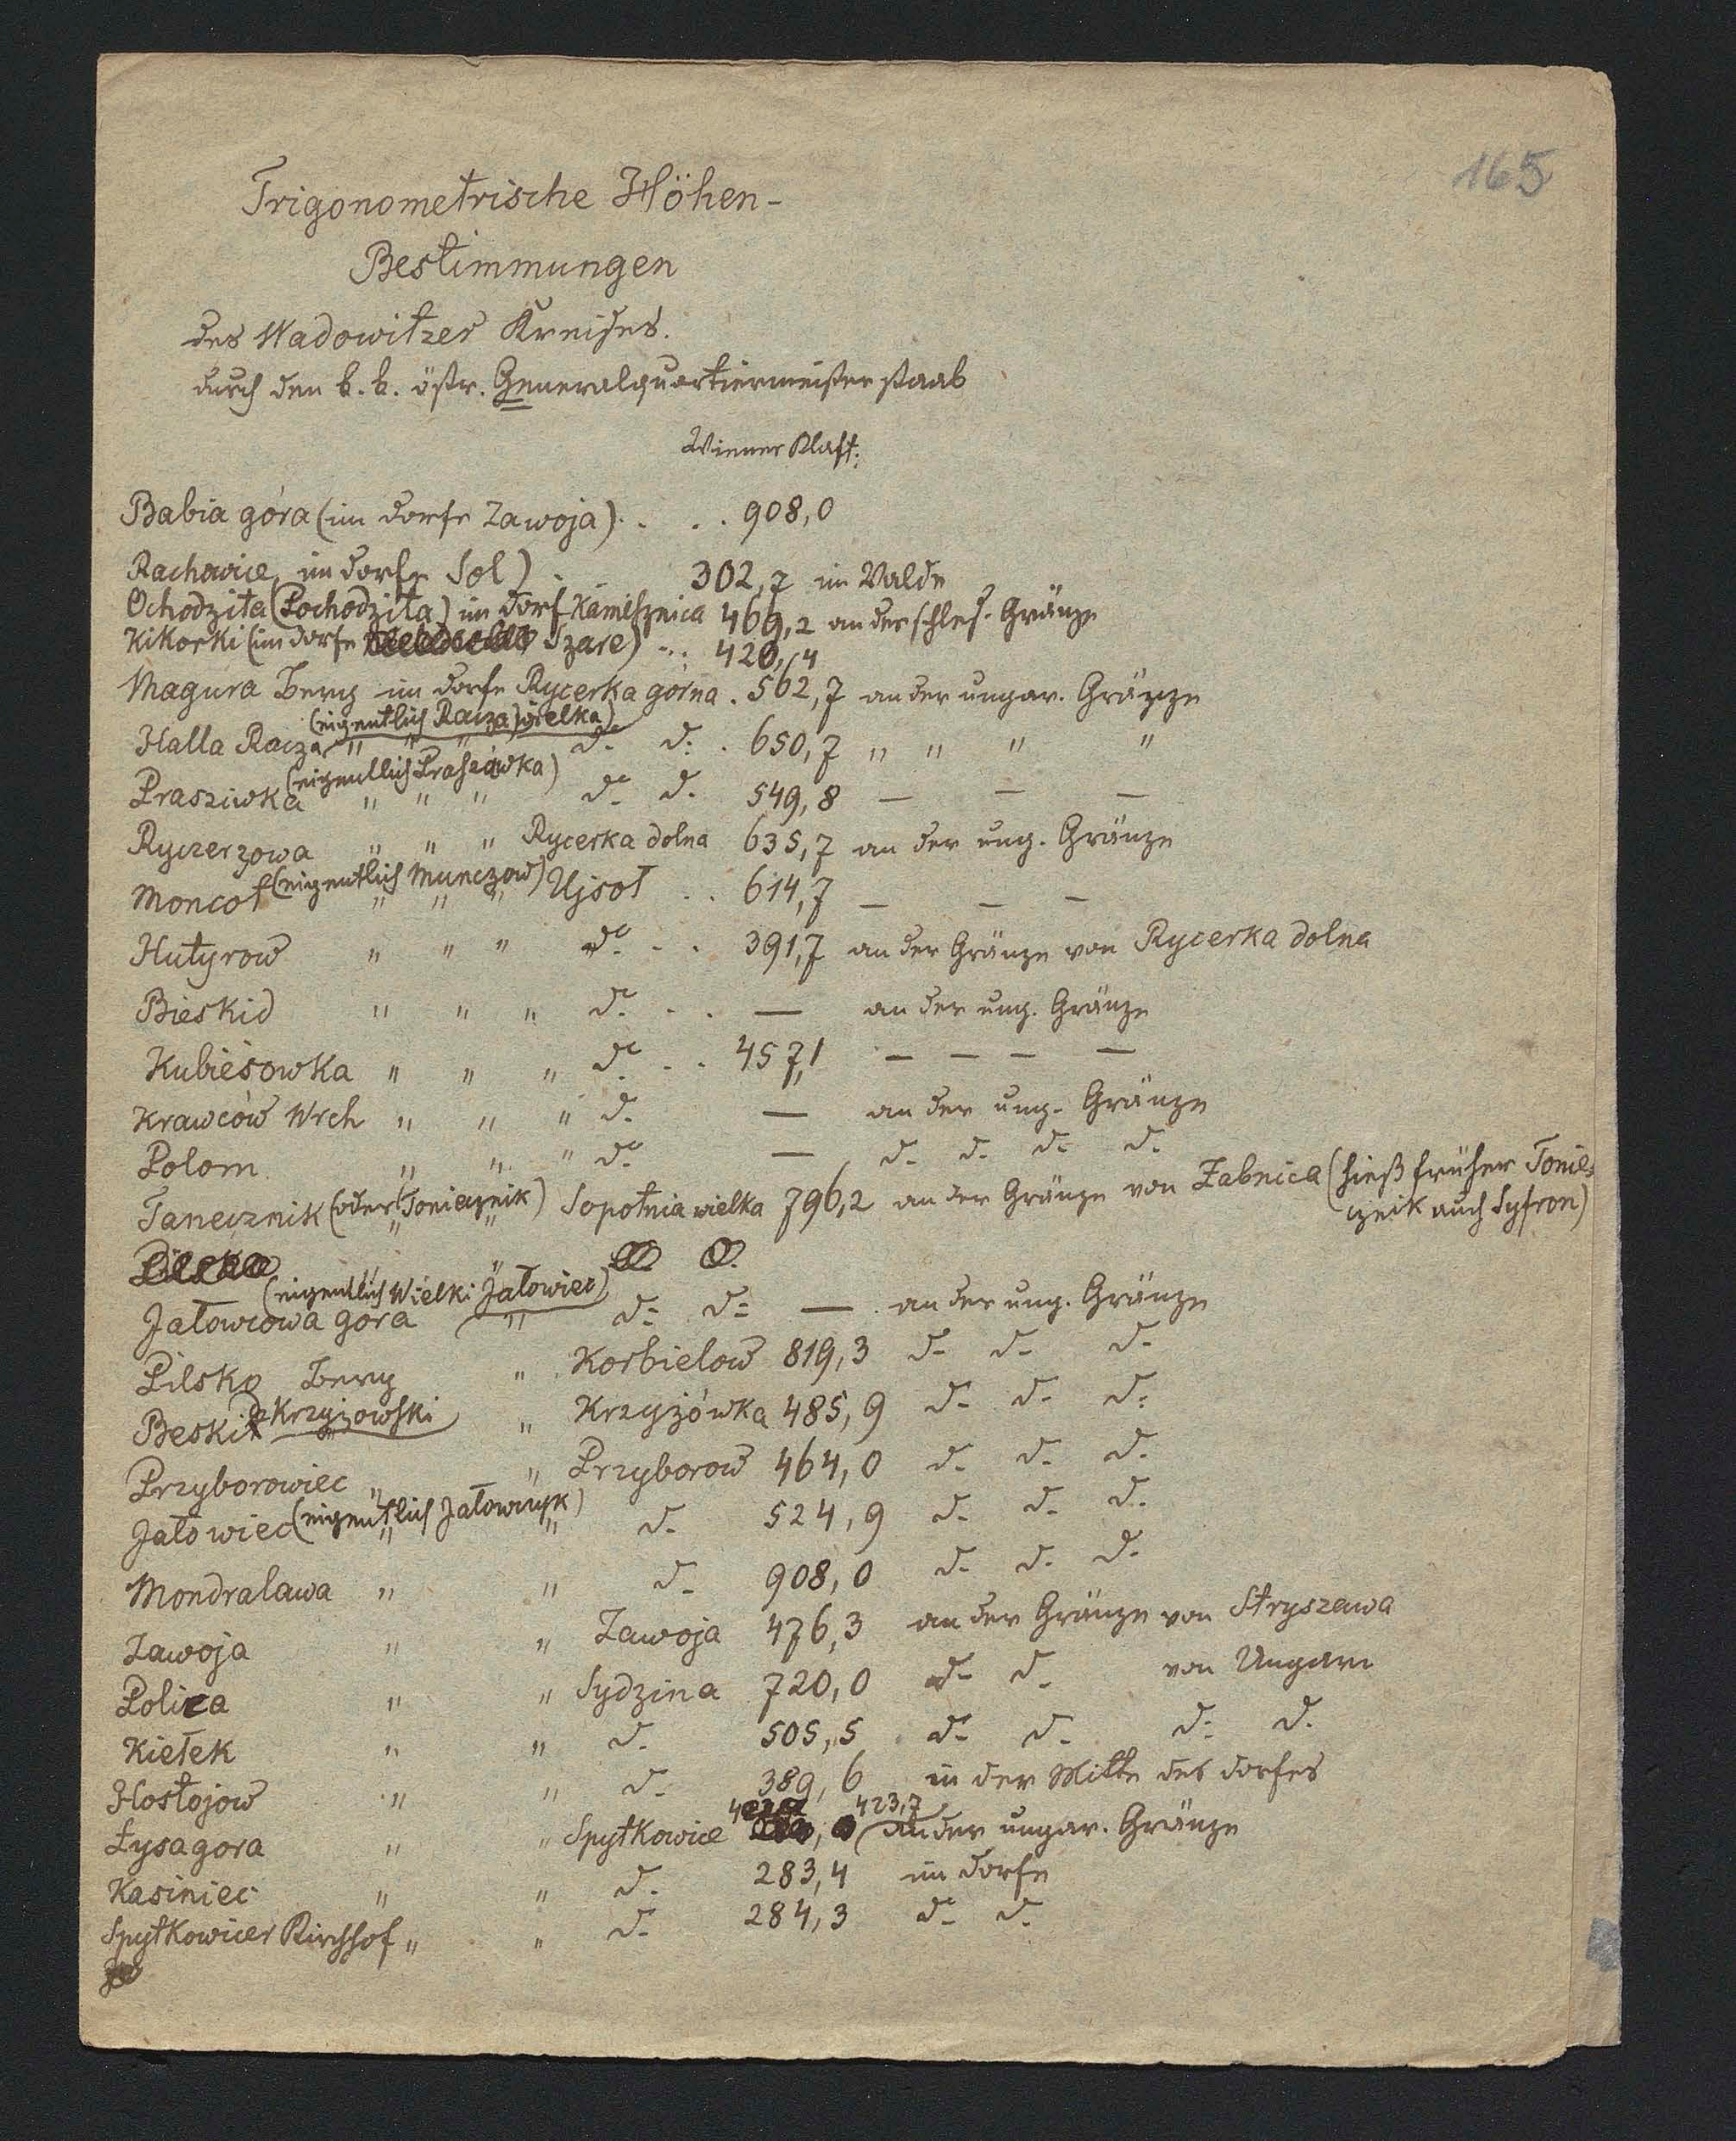 165
Trigonometrische Höhen-
Bestimmungen
des Wadowitzer Kreises.
durch den k. k. östr. Generalquartiermeisterstaab
Wiener Klaft:
Babia góra (im Dorfe Zawoja) . . . 908,0
Rachowice, im Dorfe Sol) . . 302,7 im Walde
Ochodzita (Pochodzita) im Dorf Kamesznica 469,2 an der schles. Gränze
Kikorki (im Dorfe Szare) . . . 420,4
Magura Berg im Dorfe Rycerka górna . 562,7 an der ungar. Gränze
(eigentlich Racza wielka)
Halla Racza " " " d: d: . 650,7 " " " "
(eigentlich Prasiówka)
Prasziwka " " " d: d: 549,8 — — —
Ryczerzowa " " " Rycerka dolna 635,7 an der ung. Gränze
Moncoł (eigentlich Munczow) " " " Ujsoł . . 614,7 — — —
Hutyrow " " " d: . . 391,7 an der Gränze von Rycerka dolna
Bieskid " " " d: . . — an der ung. Gränze
Kubiesowka " " " d: . . 457,1 — — — —
Krawców Wrch " " " d: — an der ung. Gränze
Polom " " " d: — d: d: d: d:
Tanecznik (oder Tonieznik) " " Sopotnia wielka 796,2 an der Gränze von Zabnica (hieß früher Tonie-
cznik auch Syfron)
Pilsko " " d: d:
(eigentlich Wielki Jałowiec)
Jałowcowa gora " d: d: — . an der ung. Gränze
Pilsko Berg " Korbielow 819,3 d: d: d:
Beskid Krzyżowski " Krzyżówka 485,9 d: d: d:
Przyborowiec " " Przyborow 464,0 d: d: d:
Jałowiec (eigentlich Jałowczyk) " " d: 524,9 d: d: d:
Mondralawa " " d: 908,0 d: d: d:
Zawoja " " Zawoja 476,3 an der Gränze von Stryszawa
Polica " " Sydzina 720,0 d: d: von Ungarn
Kiełek " " d: 505,5 d: d: d: d:
Hostojow " " d: 389,6 in der Mitte des Dorfes
423,7
Łysagora " " Spytkowice an der ungar. Gränze
Kasiniec " " d: 283,4 im Dorfe
Spytkowicer Kirchhof " " d: 284,3 d: d: